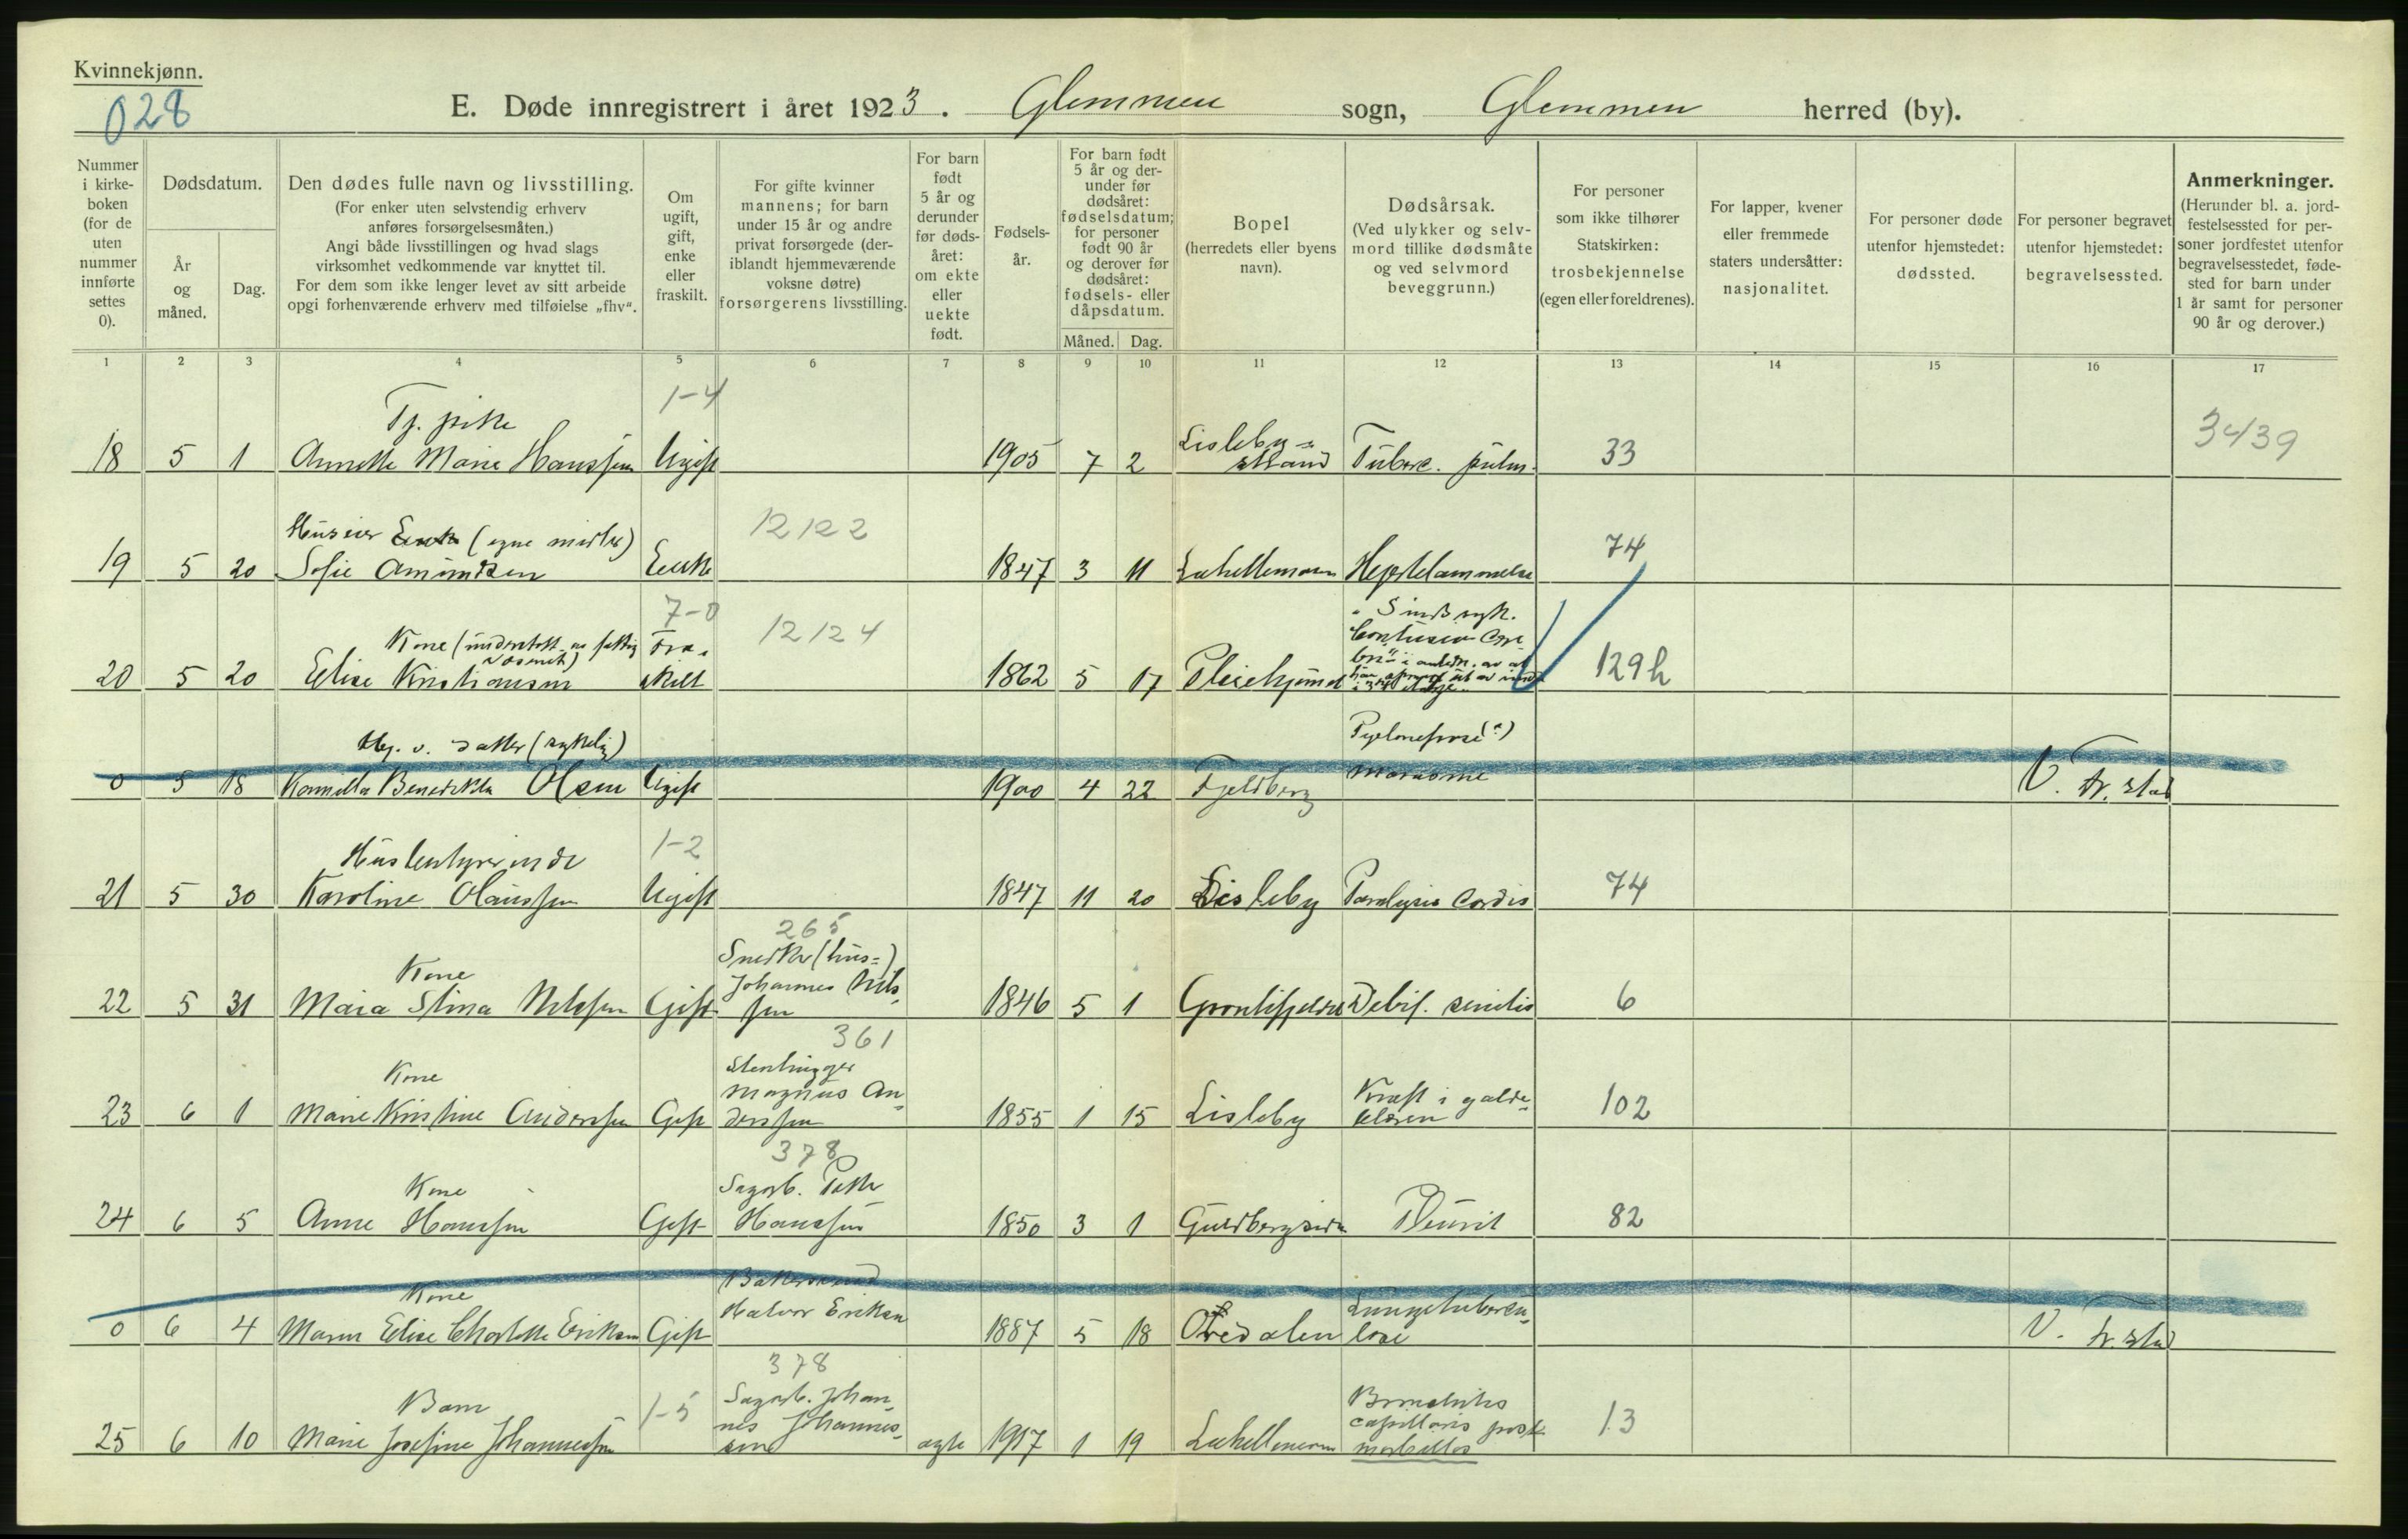 Kvinnekjønn.
028
E. Døde innregistrert i året 1923. Glemmen sogn, Glemmen herred (by).
Nummer i kirkeboken (for de uten nummer innførte settes 0).
Dødsdatum.
År og måned.
Dag.
Den dødes fulle navn og livsstilling.
(For enker uten selvstendig erhverv anføres forsørgelsesmåten.)
Angi både livsstillingen og hvad slags virksomhet vedkommende var knyttet til.
For dem som ikke lenger levet av sitt arbeide opgi forhenværende erhverv med tilføielse „fhv“.
Om ugift, gift, enke eller fraskilt.
For gifte kvinner mannens; for barn under 15 år og andre privat forsørgede (deriblandt hjemmeværende voksne døtre) forsørgerens livsstilling.
For barn født 5 år og derunder før dødsåret: om ekte eller uekte født.
Fødselsår.
For barn født 5 år og derunder før dødsåret: fødselsdatum; for personer født 90 år og derover før dødsåret: fødsels- eller dåpsdatum.
Måned. Dag.
Bopel (herredets eller byens navn).
Dødsårsak.
(Ved ulykker og selvmord tillike dødsmåte og ved selvmord beveggrunn.)
For personer som ikke tilhører Statskirken: trosbekjennelse (egen eller foreldrenes).
For lapper, kvener eller fremmede staters undersåtter: nasjonalitet.
For personer døde utenfor hjemstedet: dødssted.
For personer begravet utenfor hjemstedet: begravelsessted.
Anmerkninger.
(Herunder bl. a. jordfestelsessted for personer jordfestet utenfor begravelsesstedet, fødested for barn under 1 år samt for personer 90 år og derover.)
1 2 3 4 5 6 7 8 9 10 11 12 13 14 15 16 17
Tj. pike 1-4
18 5 1 Annette Marie Hanssen Ugift 1905 7 2 Lisleby= strand Tuberc. pulm. 33 3439
Huseier Enke (egne midler) 12122
19 5 20 Sofie Amundsen Enke 1847 3 11 Hjertelammelse 74
Kone (understøtt. av fattigvæsenet) 7-0 12124
20 5 20 Elise Kristiansen Fraskilt 1862 5 17 Pleiehjemmet Sindssyk. 129h
Hj. v. datter (sykelig) Pyelonefrose (?)
0 5 18 Benedikte Olsen Ugift 1900 4 22 Fjeldberg Marasme V. Fr.stad
Husbestyrerinde 1-2
21 5 30 Karoline Olaussen Ugift 1847 11 20 Lisleby Paralysis Cordis 74
265
Kone Snedker (hus=)
22 5 31 Maia Stina Nilssen Gift Johannes Nilssen 1846 5 1 Debil. senilis 6
361
Kone Stenhugger
23 6 1 Marie Kristine Anderssen Gift Magnus Anderssen 1855 1 15 Lisleby Kræft i galdeblæren 102
378
Kone Sagarb. Petter
24 6 5 Anne Hanssen Gift Hanssen 1850 3 1 Guldbergsiden Pleurit 82
Kone Bakersvend
0 6 4 Elise Charlotte Eriksen Gift Halvor Eriksen 1887 5 18 Oredalen Lungetuberculose V. Fr.stad
378
Barn 1-5 Sagarb. Johannes
25 6 10 Marie Josefine Johannessen Johannessen ægte 1917 1 19 Bronchitis capillaris post morbillos 13